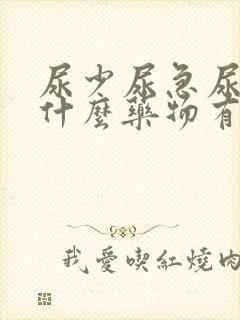 尿少尿急尿
什麼藥物有
我愛喫紅燒肉